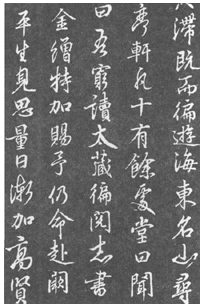 滯既而徧遊海東名山尋
亭軒凡十有餘處堂曰聞
曰吾窮讀太藏徧閱志書
金繒特加賜予仍命赴闕
平生見思量日漸加高賢